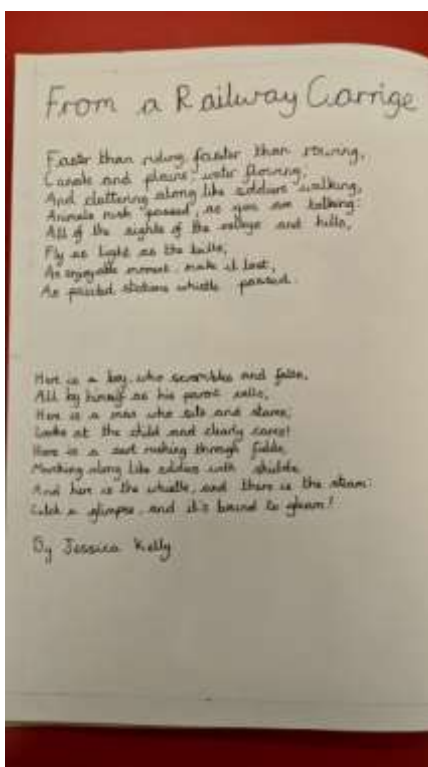 From a Railway Carrige
Faster than riding, faster than rowing,
Canals and plains water flowing,
And clattering along like soldiers walking,
Animals rush passed, as you are talking:
All of the sights of the valleys and hills,
Fly as light as the bulls,
An enjoyable moment, make it last,
As painted stations whistle passed.
Here is a boy who scrambles and falls,
All by himself as his parent calls,
Here is a man who sits and stares,
Looks at the child and clearly cares!
Here is a cart rushing through fields,
Marching along like soldiers with shields
And here is the whistle, and there is the steam:
Catch a glimpse, and it's bound to gleam!
By Jessica Kelly